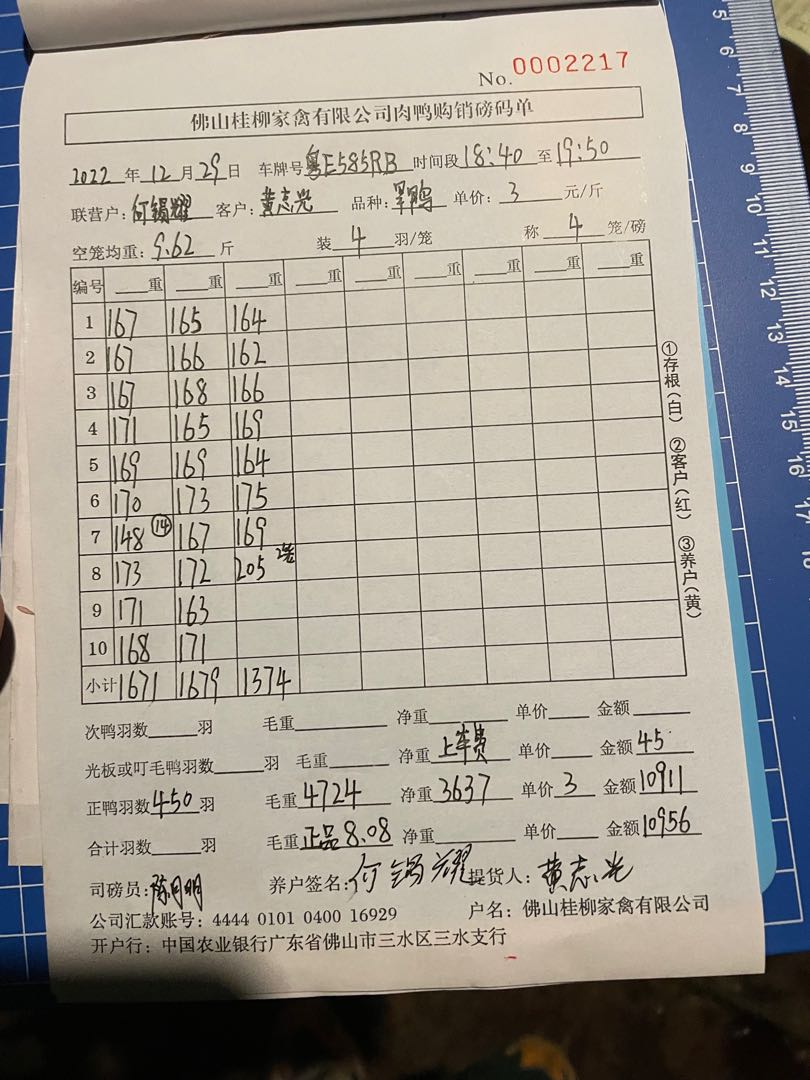 No. 0002217
佛山桂柳家禽有限公司肉鸭购销磅码单
2022年12月29日 车牌号粤E585RB 时间段18:40至19:50
联营户:何锡耀 客户:黄志光 品种:黑鸭 单价:3元/斤
空笼均重:9.62斤 装4羽/笼 称4笼/磅
编号 重 重 重 重 重 重 重 重 重
1 167 165 164
2 167 166 162
3 167 168 166
4 171 165 169
5 169 169 164
6 170 173 175
7 148 ⑭ 167 169
8 173 172 205
9 171 163
10 168 171
小计 1671 1679 1374
①存根(白) ②客户(红) ③养户(黄)
次鸭羽数 羽 毛重 净重 单价 金额
光板或叮毛鸭羽数 羽 毛重 净重 上车费 单价 金额45
正鸭羽数450羽 毛重4724 净重3637 单价3 金额10911
合计羽数 羽 毛重正品8.08 净重 单价 金额10956
司磅员:陈月明 养户签名:何锡耀 提货人:黄志光
公司汇款账号:4444 0101 0400 16929 户名:佛山桂柳家禽有限公司
开户行:中国农业银行广东省佛山市三水区三水支行
5
6
7
8
9
10
11
12
13
14
15
16
17